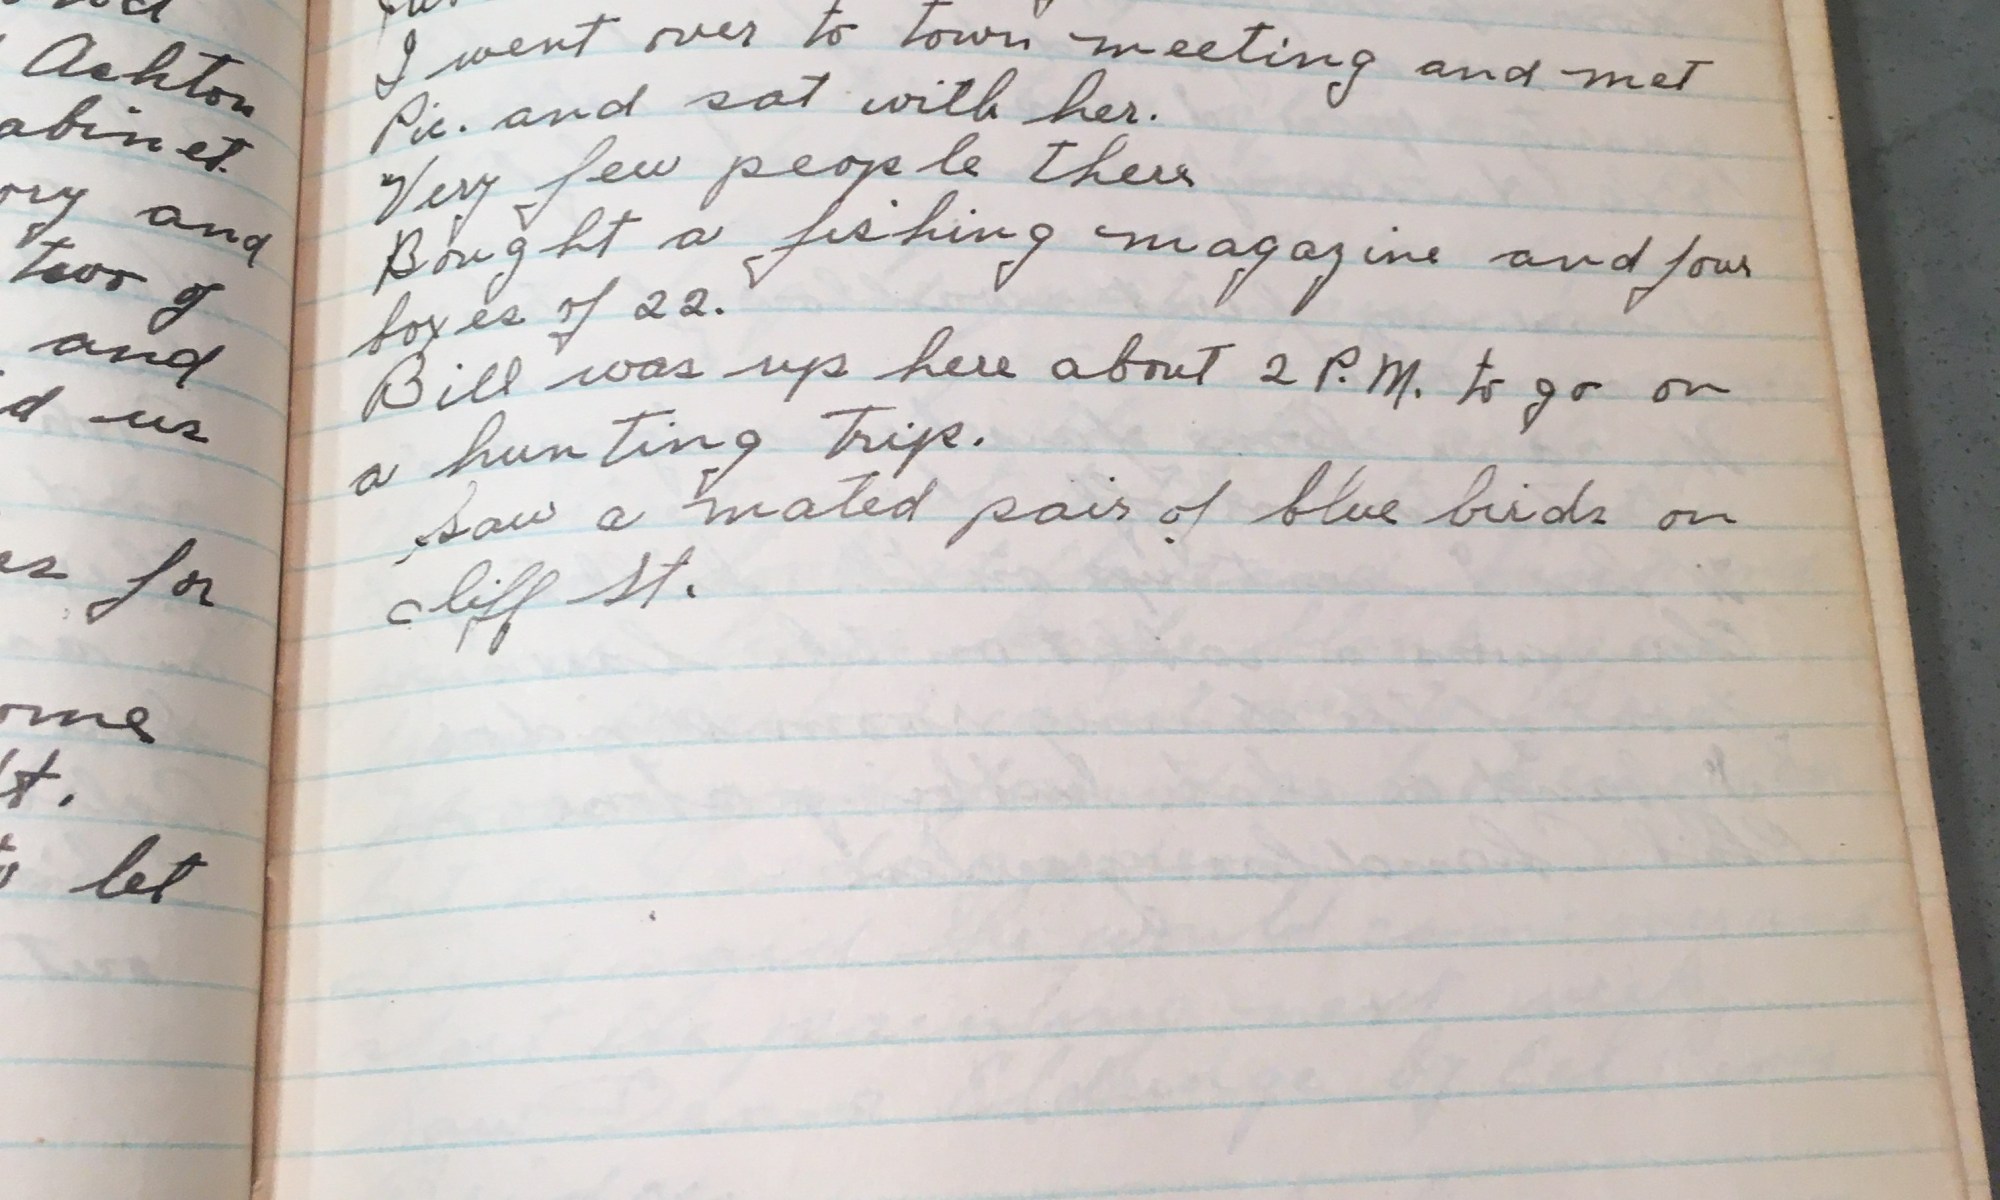 Ashton
abinet.
ory and
two of
and
d us
es for
ome
St.
let
I went over to town meeting and met
Pic. and sat with her.
Very few people there
Bought a fishing magazine and four
boxes of 22.
Bill was up here about 2 P.M. to go on
a hunting trip.
Saw a mated pair of blue birds on
cliff St.